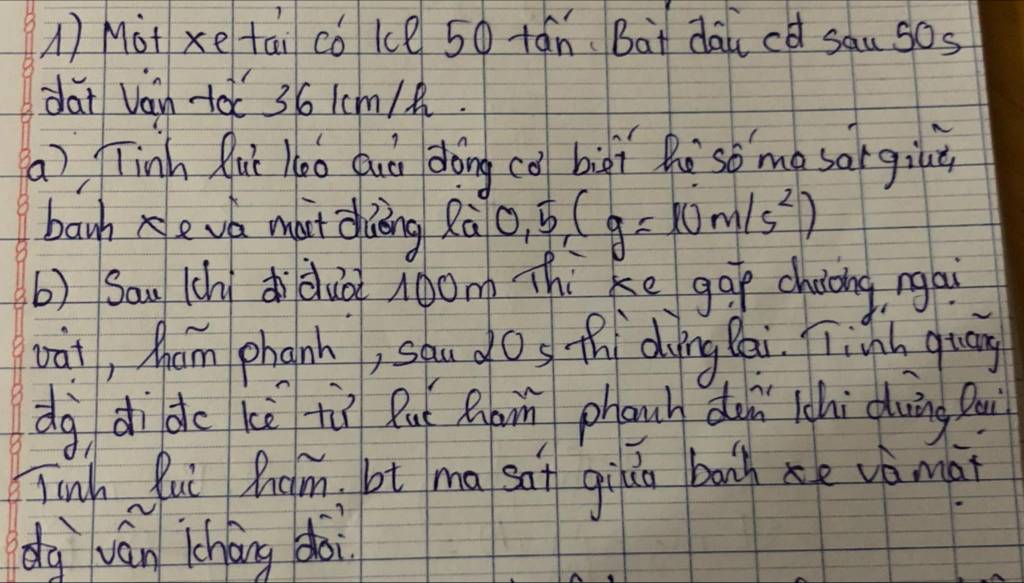 1) Một xe tải có kl 50 tấn. Bắt đầu cđ sau 50s
đạt vận tốc 36 km/h.
a) Tính lực kéo của động cơ biết hệ số ma sát giữa
bánh xe và mặt đường là 0,5 (g = 10 m/s²)
b) Sau khi đi được 100m thì xe gặp chướng ngại
vật, hãm phanh, sau 20s thì dừng lại. Tính quãng
đg đi đc kể từ lúc hãm phanh đến khi dừng lại
Tính lực hãm. bt ma sát giữa bánh xe và mặt
đg vẫn không đổi.